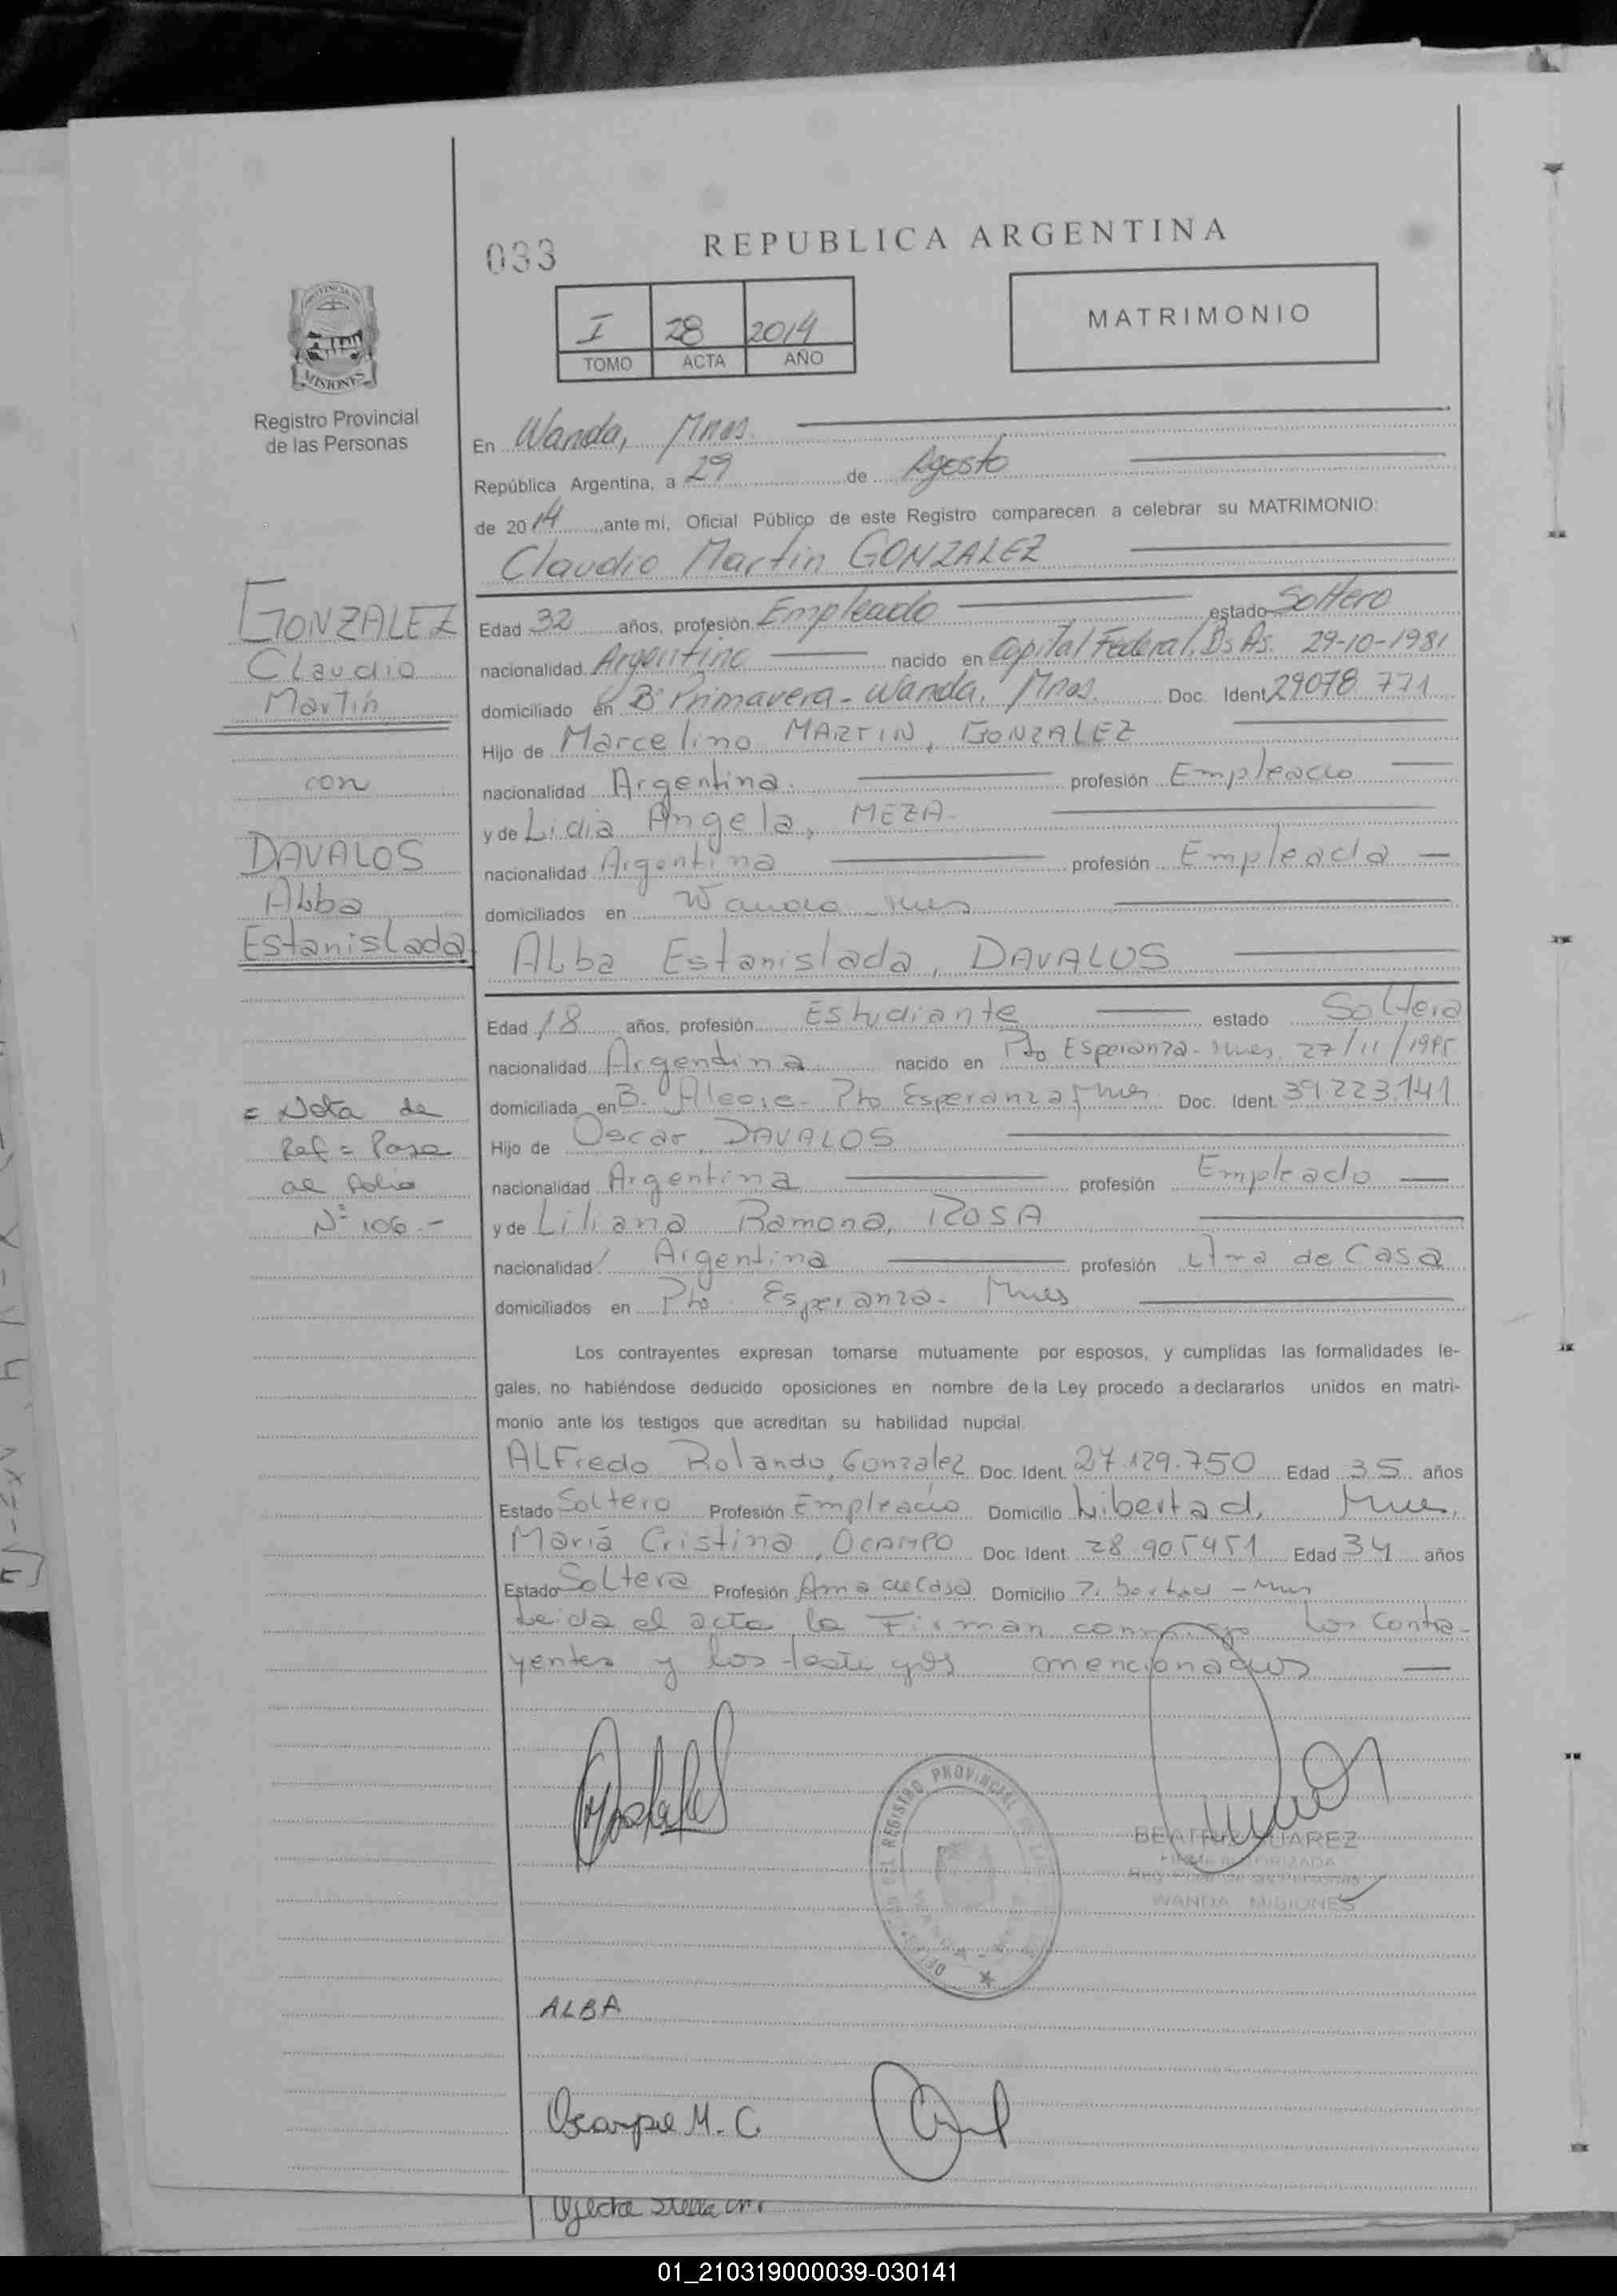 033
REPUBLICA ARGENTINA
I 28 2014
TOMO ACTA AÑO
MATRIMONIO
PROVINCIA DE
MISIONES
Registro Provincial
de las Personas
En Wanda, Mnes
República Argentina, a 29 de Agosto
de 2014 ante mi, Oficial Público de este Registro comparecen a celebrar su MATRIMONIO:
Claudio Martin GONZALEZ
GONZALEZ
Claudio
Martín
con
DAVALOS
Alba
Estanislada
Edad 32 años, profesión Empleado estado Soltero
nacionalidad Argentino nacido en Capital Federal, Bs As. 29-10-1981
domiciliado en Bº Primavera - Wanda, Mnes. Doc. Ident. 29078 771
Hijo de Marcelino MARTIN, GONZALEZ
nacionalidad Argentina. profesión Empleado
y de Lidia Angela, MEZA
nacionalidad Argentina profesión Empleada
domiciliados en Wanda Mnes
Alba Estanislada, DAVALOS
Edad 18 años, profesión Estudiante estado Soltera
nacionalidad Argentina nacido en Pto Esperanza - Mnes. 27/11/1995
domiciliada en B. Alegre - Pto Esperanza Mnes Doc. Ident. 39.223.141
Hijo de Oscar, DAVALOS
nacionalidad Argentina profesión Empleado
y de Liliana Ramona, ROSA
nacionalidad Argentina profesión Ama de Casa
domiciliados en Pto. Esperanza - Mnes
= Nota de
Ref = Pasa
al folio
Nº 106.-
Los contrayentes expresan tomarse mutuamente por esposos, y cumplidas las formalidades le-
gales, no habiéndose deducido oposiciones en nombre de la Ley procedo a declararlos unidos en matri-
monio ante los testigos que acreditan su habilidad nupcial.
ALFredo Rolando, Gonzalez Doc. Ident. 27.129.750 Edad 35 años
Estado Soltero Profesión Empleado Domicilio Libertad, Mnes,
Maria Cristina, OCAMPO Doc. Ident. 28 905451 Edad 34 años
Estado Soltera Profesión Ama de Casa Domicilio Libertad - Mnes
Leida el acta la Firman conmigo los contra-
yentes y los testigos mencionados
DEL REGISTRO PROVINCIAL
BEATRIZ SUAREZ
FIRMA AUTORIZADA
WANDA MISIONES
ALBA
Ocampo M. C.
01_210319000039-030141